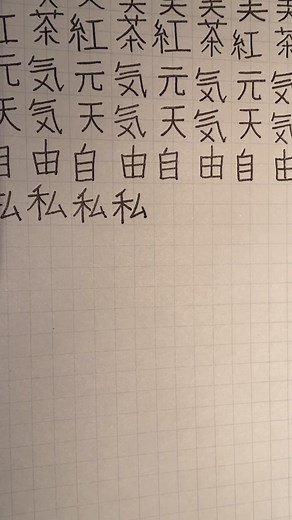 紅茶紅茶紅茶紅茶
元気元気元気元気
天気天気天気天気
自由自由自由自由
私私私私